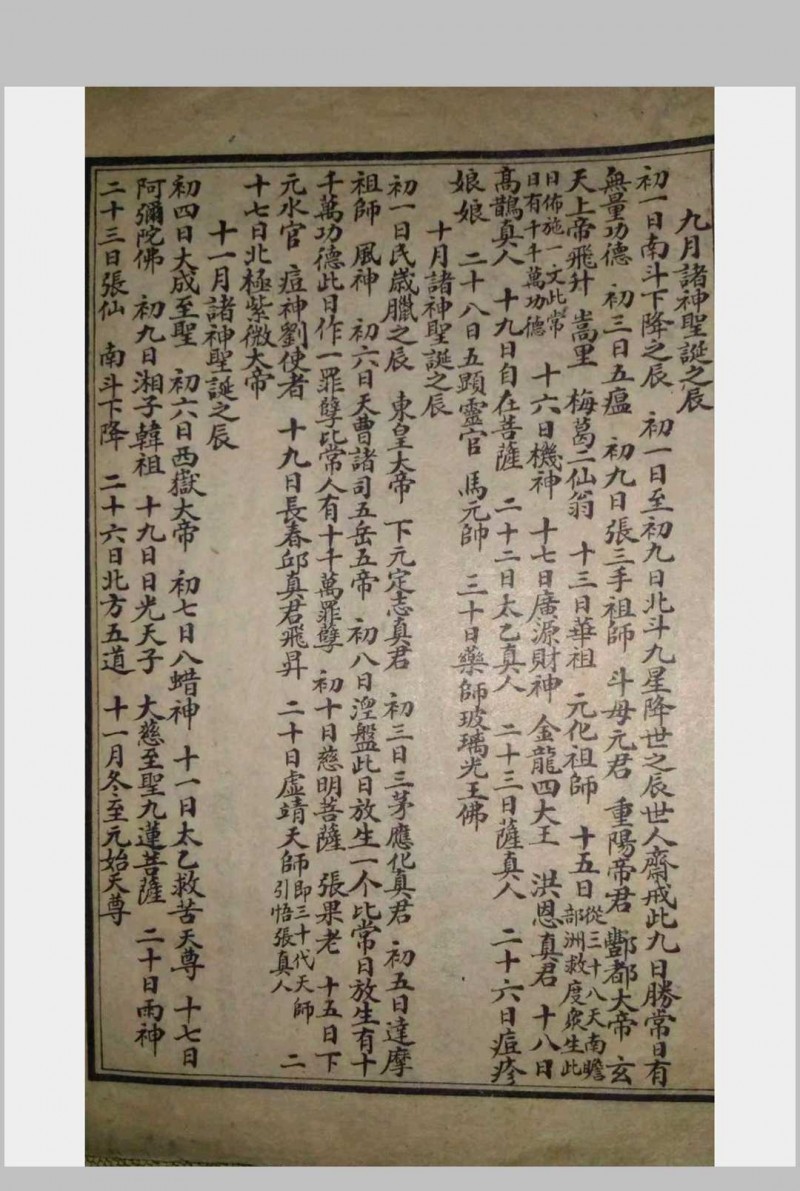 九月諸神聖誕之辰
初一日南斗下降之辰 初一日至初九日北斗九星降世之辰世人齋戒此九日勝常日有
無量功德 初三日五瘟 初九日張三手祖師 斗母元君 重陽帝君 酆都大帝 玄
天上帝飛升 嵩里 梅葛二仙翁 十三日華祖 元化祖師 十五日從三十八天南瞻
部洲救度眾生此
日佈施一文此常
日有千千萬功德 十六日機神 十七日廣源財神 金龍四大王 洪恩真君 十八日
高鵲真人 十九日自在菩薩 二十二日太乙真人 二十三日薩真人 二十六日痘疹
娘娘 二十八日五顯靈官 馬元帥 三十日藥師玻璃光王佛
十月諸神聖誕之辰
初一日民歲臘之辰 東皇大帝 下元定志真君 初三日三茅應化真君 初五日達摩
祖師 風神 初六日天曹諸司五岳五帝 初八日湼盤此日放生一个比常日放生有十
千萬功德此日作一罪孽比常人有十千萬罪孽 初十日慈明菩薩 張果老 十五日下
元水官 痘神劉使者 十九日長春邱真君飛昇 二十日虛靖天師即三十代天師
引悟張真人 二
十七日北極紫微大帝
十一月諸神聖誕之辰
初四日大成至聖 初六日西嶽大帝 初七日八蜡神 十一日太乙救苦天尊 十七日
阿彌陀佛 初九日湘子韓祖 十九日日光天子 大慈至聖九蓮菩薩 二十日雨神
二十三日張仙 南斗下降 二十六日北方五道 十一月冬至元始天尊